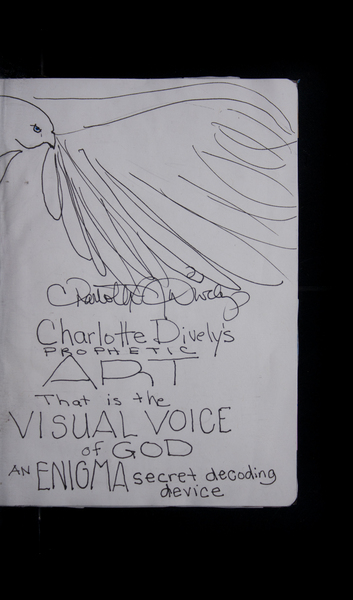 Charlotte Dively
Charlotte Dively's
PROPHETIC
ART
That is the
VISUAL VOICE
of GOD
AN ENIGMA secret decoding
device